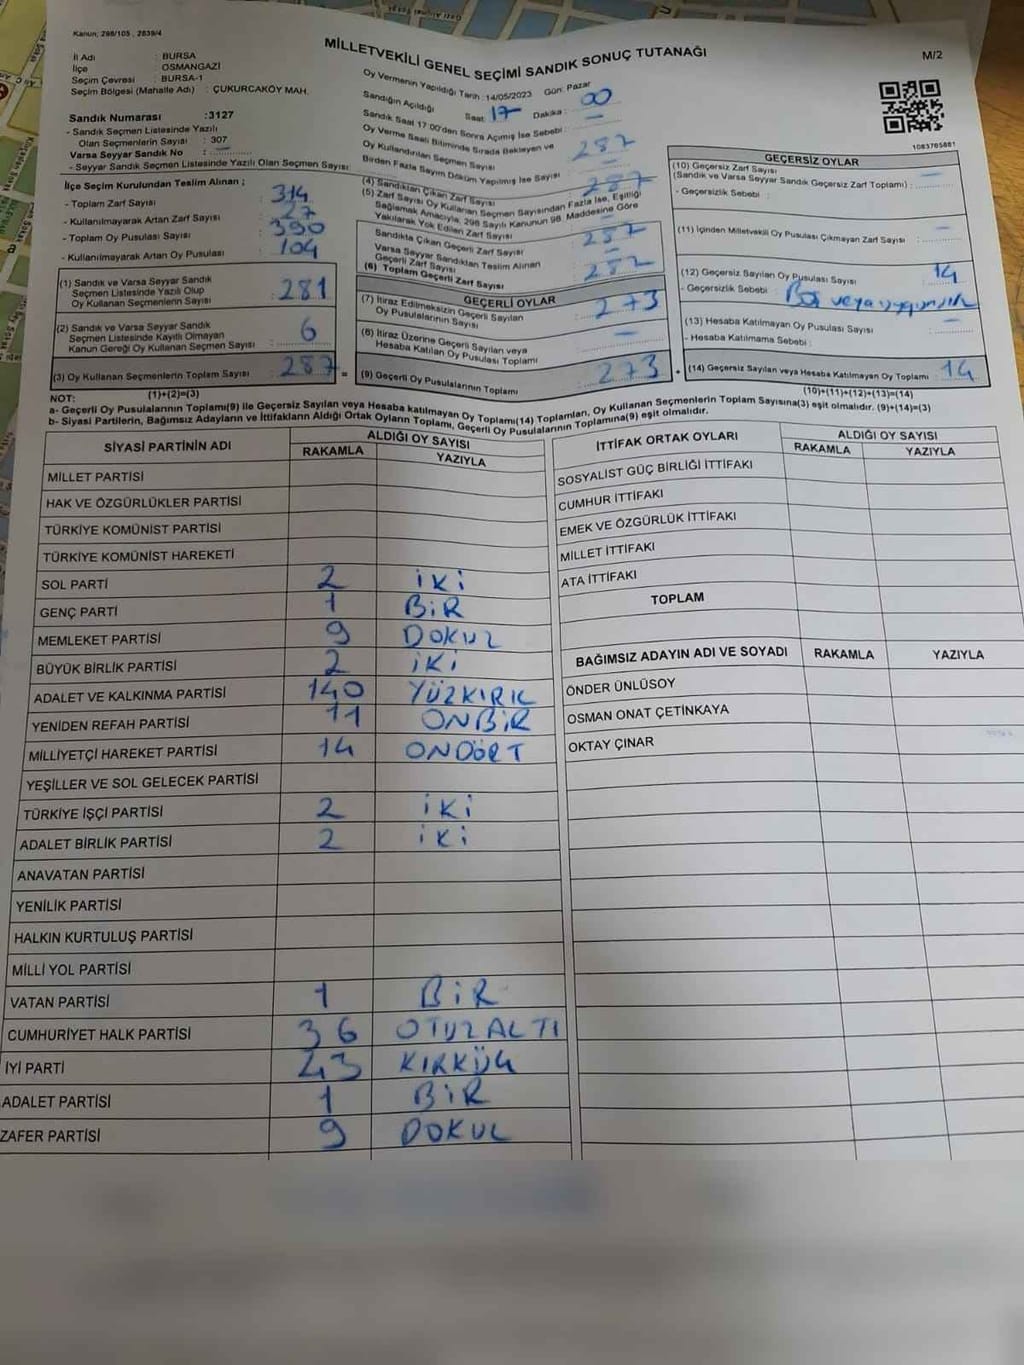 Kanun; 298/105 , 2839/4
MİLLETVEKİLİ GENEL SEÇİMİ SANDIK SONUÇ TUTANAĞI
M/2
İl Adı : BURSA
İlçe : OSMANGAZİ
Seçim Çevresi : BURSA-1
Seçim Bölgesi (Mahalle Adı) : ÇUKURCAKÖY MAH.
Sandık Numarası :3127
- Sandık Seçmen Listesinde Yazılı
Olan Seçmenlerin Sayısı : 307
Varsa Seyyar Sandık No : –
- Seyyar Sandık Seçmen Listesinde Yazılı Olan Seçmen Sayısı :
Oy Vermenin Yapıldığı Tarih :14/05/2023 Gün: Pazar
Sandığın Açıldığı Saat: 17 Dakika : 00
Sandık Saat 17:00'den Sonra Açımış İse Sebebi : –
Oy Verme Saati Bitiminde Sırada Bekleyen ve
Oy Kullandırılan Seçmen Sayısı
287
Birden Fazla Sayım Döküm Yapılmış İse Sayısı : –
1083705881
İlçe Seçim Kurulundan Teslim Alınan ;
- Toplam Zarf Sayısı : 314
- Kullanılmayarak Artan Zarf Sayısı : 27
- Toplam Oy Pusulası Sayısı : 390
- Kullanılmayarak Artan Oy Pusulası : 104
(1) Sandık ve Varsa Seyyar Sandık
Seçmen Listesinde Yazılı Olup
Oy Kullanan Seçmenlerin Sayısı : 281
(2) Sandık ve Varsa Seyyar Sandık
Seçmen Listesinde Kayıtlı Olmayan
Kanun Gereği Oy Kullanan Seçmen Sayısı : 6
(3) Oy Kullanan Seçmenlerin Toplam Sayısı : 287 =
(1)+(2)=(3)
(4) Sandıktan Çıkan Zarf Sayısı : 287
(5) Zarf Sayısı Oy Kullanan Seçmen Sayısından Fazla İse, Eşitliği
Sağlamak Amacıyla, 298 Sayılı Kanunun 98. Maddesine Göre
Yakılarak Yok Edilen Zarf Sayısı : –
Sandıkta Çıkan Geçerli Zarf Sayısı : 287
Varsa Seyyar Sandıktan Teslim Alınan
Geçerli Zarf Sayısı : –
(6) Toplam Geçerli Zarf Sayısı : 287
GEÇERLİ OYLAR
(7) İtiraz Edilmeksizin Geçerli Sayılan
Oy Pusulalarının Sayısı : 273
(8) İtiraz Üzerine Geçerli Sayılan veya
Hesaba Katılan Oy Pusulası Toplamı : –
(9) Geçerli Oy Pusulalarının Toplamı : 273 +
GEÇERSİZ OYLAR
(10) Geçersiz Zarf Sayısı
(Sandık ve Varsa Seyyar Sandık Geçersiz Zarf Toplamı) : –
- Geçersizlik Sebebi :
(11) İçinden Milletvekili Oy Pusulası Çıkmayan Zarf Sayısı : –
(12) Geçersiz Sayılan Oy Pusulası Sayısı : 14
- Geçersizlik Sebebi : Boş veya
(13) Hesaba Katılmayan Oy Pusulası Sayısı : –
- Hesaba Katılmama Sebebi :
(14) Geçersiz Sayılan veya Hesaba Katılmayan Oy Toplamı : 14
(10)+(11)+(12)+(13)=(14)
NOT:
a- Geçerli Oy Pusulalarının Toplamı(9) ile Geçersiz Sayılan veya Hesaba katılmayan Oy Toplamı(14) Toplamları, Oy Kullanan Seçmenlerin Toplam Sayısına(3) eşit olmalıdır. (9)+(14)=(3)
b- Siyasi Partilerin, Bağımsız Adayların ve İttifakların Aldığı Ortak Oyların Toplamı, Geçerli Oy Pusulalarının Toplamına(9) eşit olmalıdır.
SİYASİ PARTİNİN ADI ALDIĞI OY SAYISI
RAKAMLA YAZIYLA
MİLLET PARTİSİ
HAK VE ÖZGÜRLÜKLER PARTİSİ
TÜRKİYE KOMÜNİST PARTİSİ
TÜRKİYE KOMÜNİST HAREKETİ
SOL PARTİ 2 İKİ
GENÇ PARTİ 1 BİR
MEMLEKET PARTİSİ 9 DOKUZ
BÜYÜK BİRLİK PARTİSİ 2 İKİ
ADALET VE KALKINMA PARTİSİ 140 YÜZKIRK
YENİDEN REFAH PARTİSİ 11 ONBİR
MİLLİYETÇİ HAREKET PARTİSİ 14 ONDÖRT
YEŞİLLER VE SOL GELECEK PARTİSİ
TÜRKİYE İŞÇİ PARTİSİ 2 İKİ
ADALET BİRLİK PARTİSİ 2 İKİ
ANAVATAN PARTİSİ
YENİLİK PARTİSİ
HALKIN KURTULUŞ PARTİSİ
MİLLİ YOL PARTİSİ
VATAN PARTİSİ 1 BİR
CUMHURİYET HALK PARTİSİ 36 OTUZ ALTI
İYİ PARTİ 43 KIRKÜÇ
ADALET PARTİSİ 1 BİR
ZAFER PARTİSİ 9 DOKUZ
İTTİFAK ORTAK OYLARI ALDIĞI OY SAYISI
RAKAMLA YAZIYLA
SOSYALİST GÜÇ BİRLİĞİ İTTİFAKI
CUMHUR İTTİFAKI
EMEK VE ÖZGÜRLÜK İTTİFAKI
MİLLET İTTİFAKI
ATA İTTİFAKI
TOPLAM
BAĞIMSIZ ADAYIN ADI VE SOYADI RAKAMLA YAZIYLA
ÖNDER ÜNLÜSOY
OSMAN ONAT ÇETİNKAYA
OKTAY ÇINAR